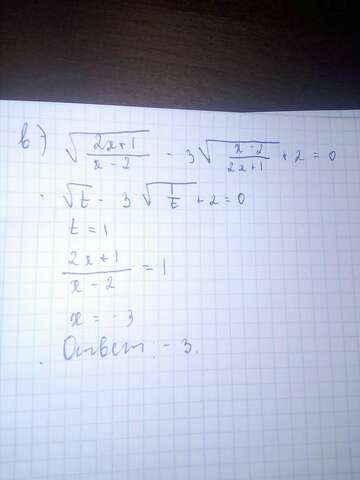 в) √((2x+1)/(x-2)) - 3√((x-2)/(2x+1)) + 2 = 0
√t - 3√(1/t) + 2 = 0
t = 1
(2x+1)/(x-2) = 1
x = -3
Ответ: -3.